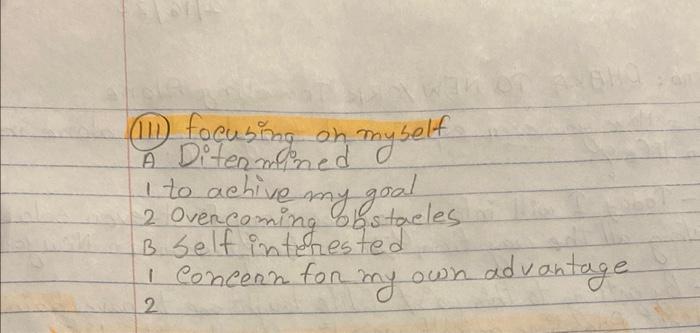 III focusing on myself
A Ditermined
1 to achive my goal
2 Overcoming obstacles
B Self interested
1 Concern for my own advantage
2